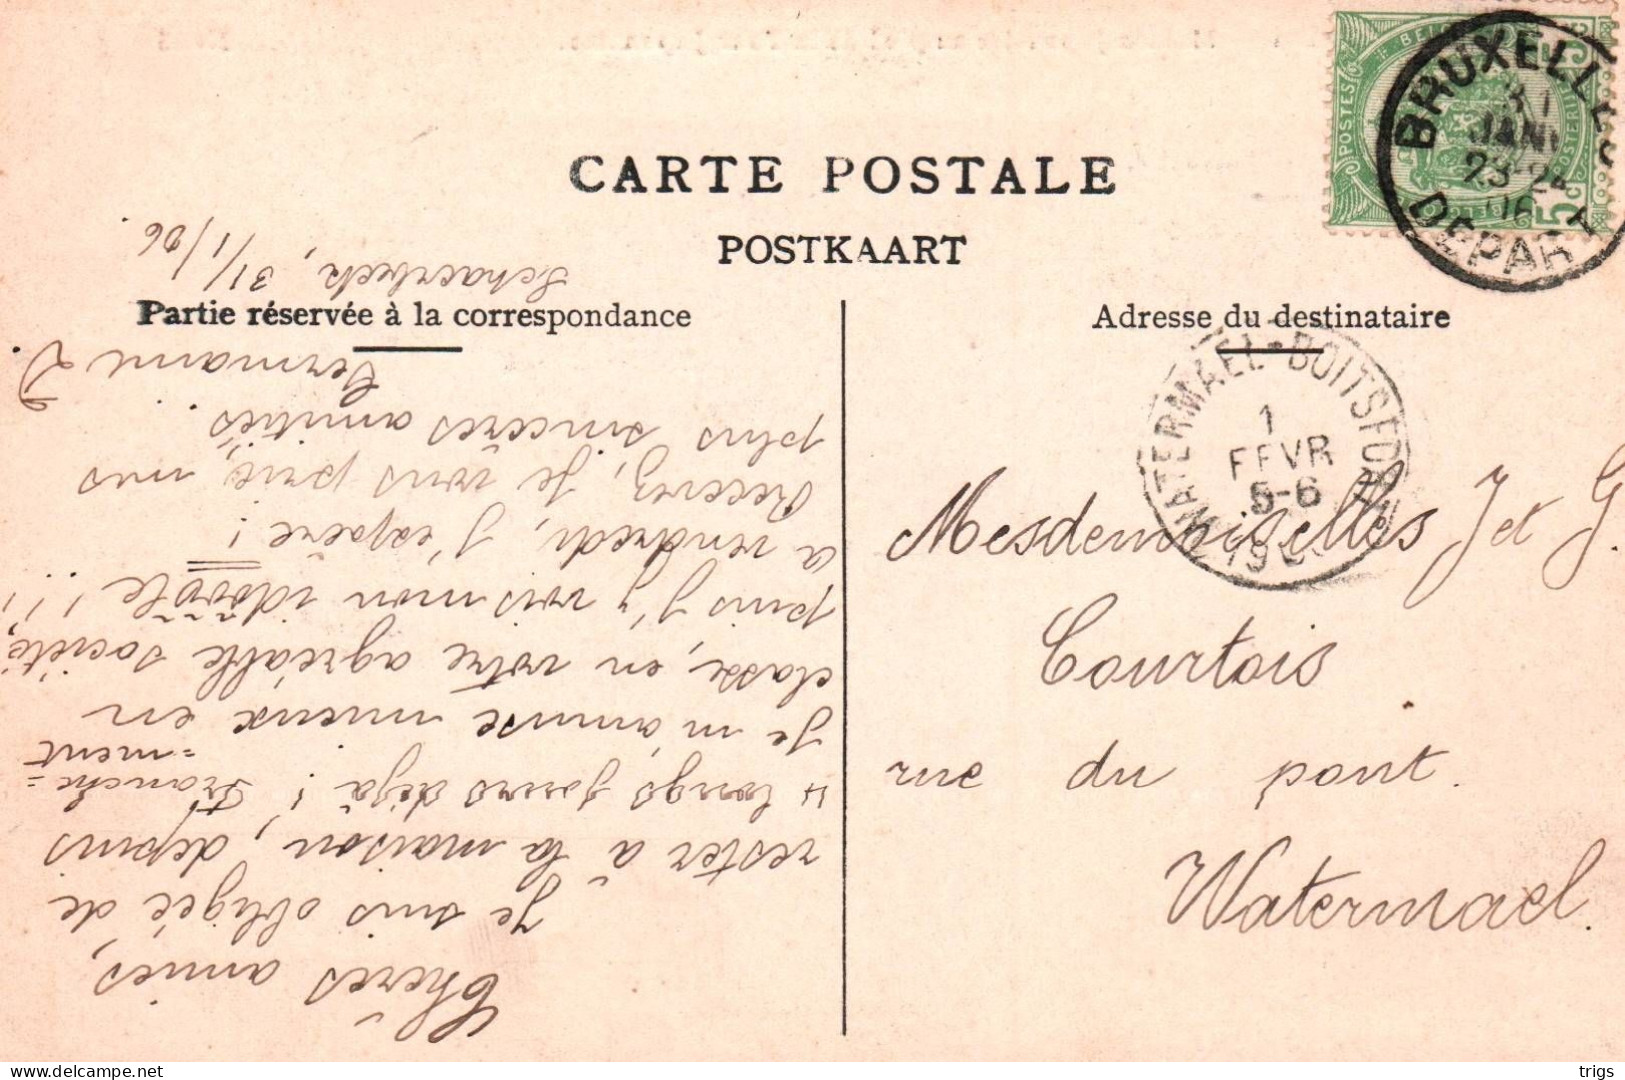 CARTE POSTALE
POSTKAART
Partie réservée à la correspondance
Adresse du destinataire
POSTES
5c
BRUXELLES
31
JANV
23-24
06
DEPART
WATERMAEL-BOITSFORT
1
FEVR
5-6
190
Mesdemoiselles J et G.
Courtois
rue du pont.
Watermael.
Schaerbeek, 31/1/06.
Chères amies,
Je suis obligée de
rester à la maison, depuis
4 longs jours déjà! Franche=
=ment
Je m'amuse mieux en
classe, en votre agréable société,
puis j'y vois mon idôole!!!,
a vendredi, j'espère!
Recevez, je vous prie, mes
plus sincères amitiés.
Germaine D.
trigs
delcampe.net